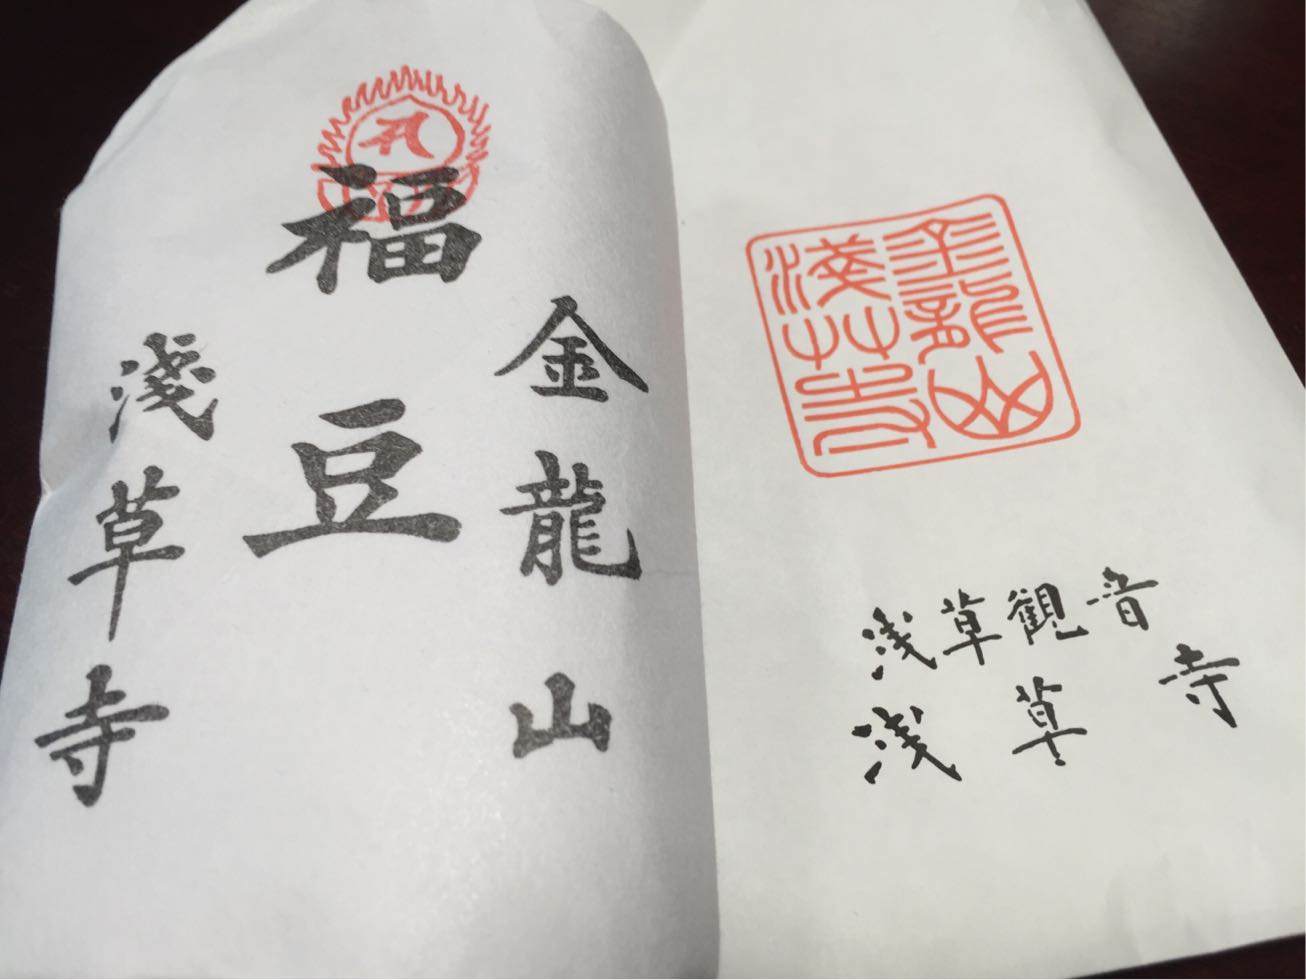 金龍山
福豆
淺草寺
金龍山
淺草寺
浅草観音
浅草寺